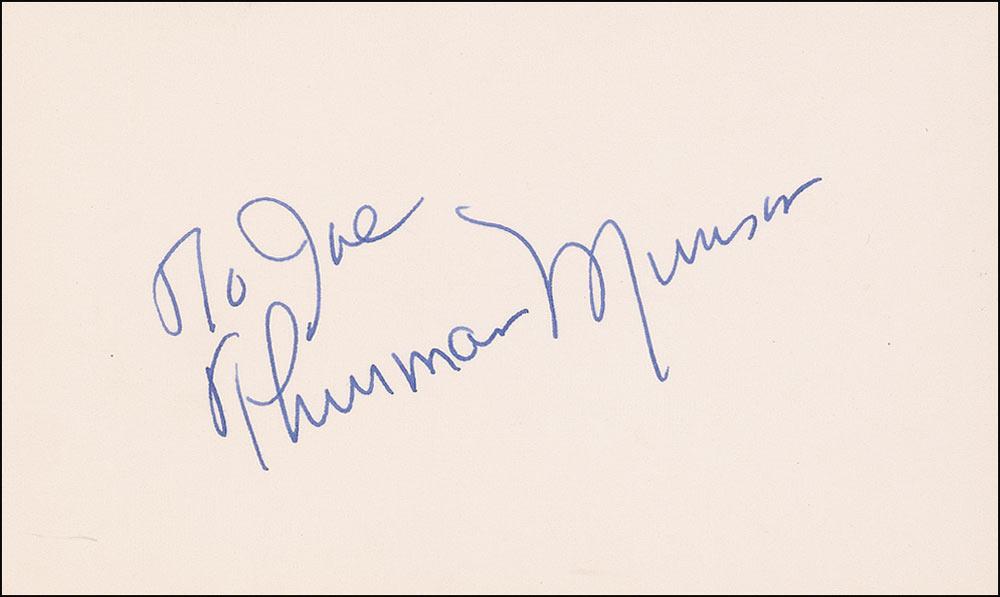 To Joe
Thurman Munson